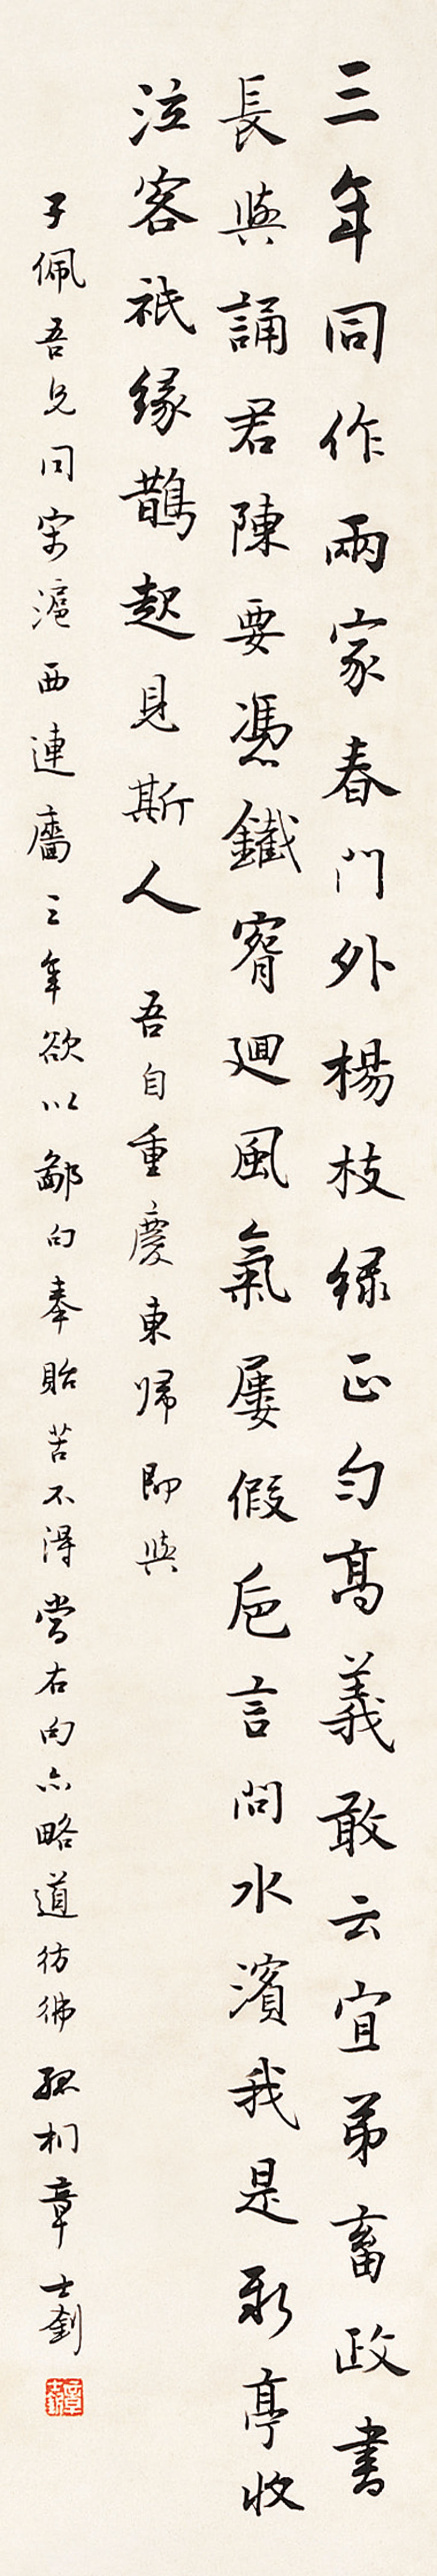 三年同作兩家春門外楊枝緑正勻高義敢云宜弟畜政書
長與誦君陳要憑鐵窅廻風氣屢假卮言問水濱我是新亭收
泣客祇緣鵲起見斯人 吾自重慶東歸即與
子佩吾兄同寓滬西連廧三年欲以鄙句奉貽苦不得當右句亦略道彷彿 孤桐章士釗